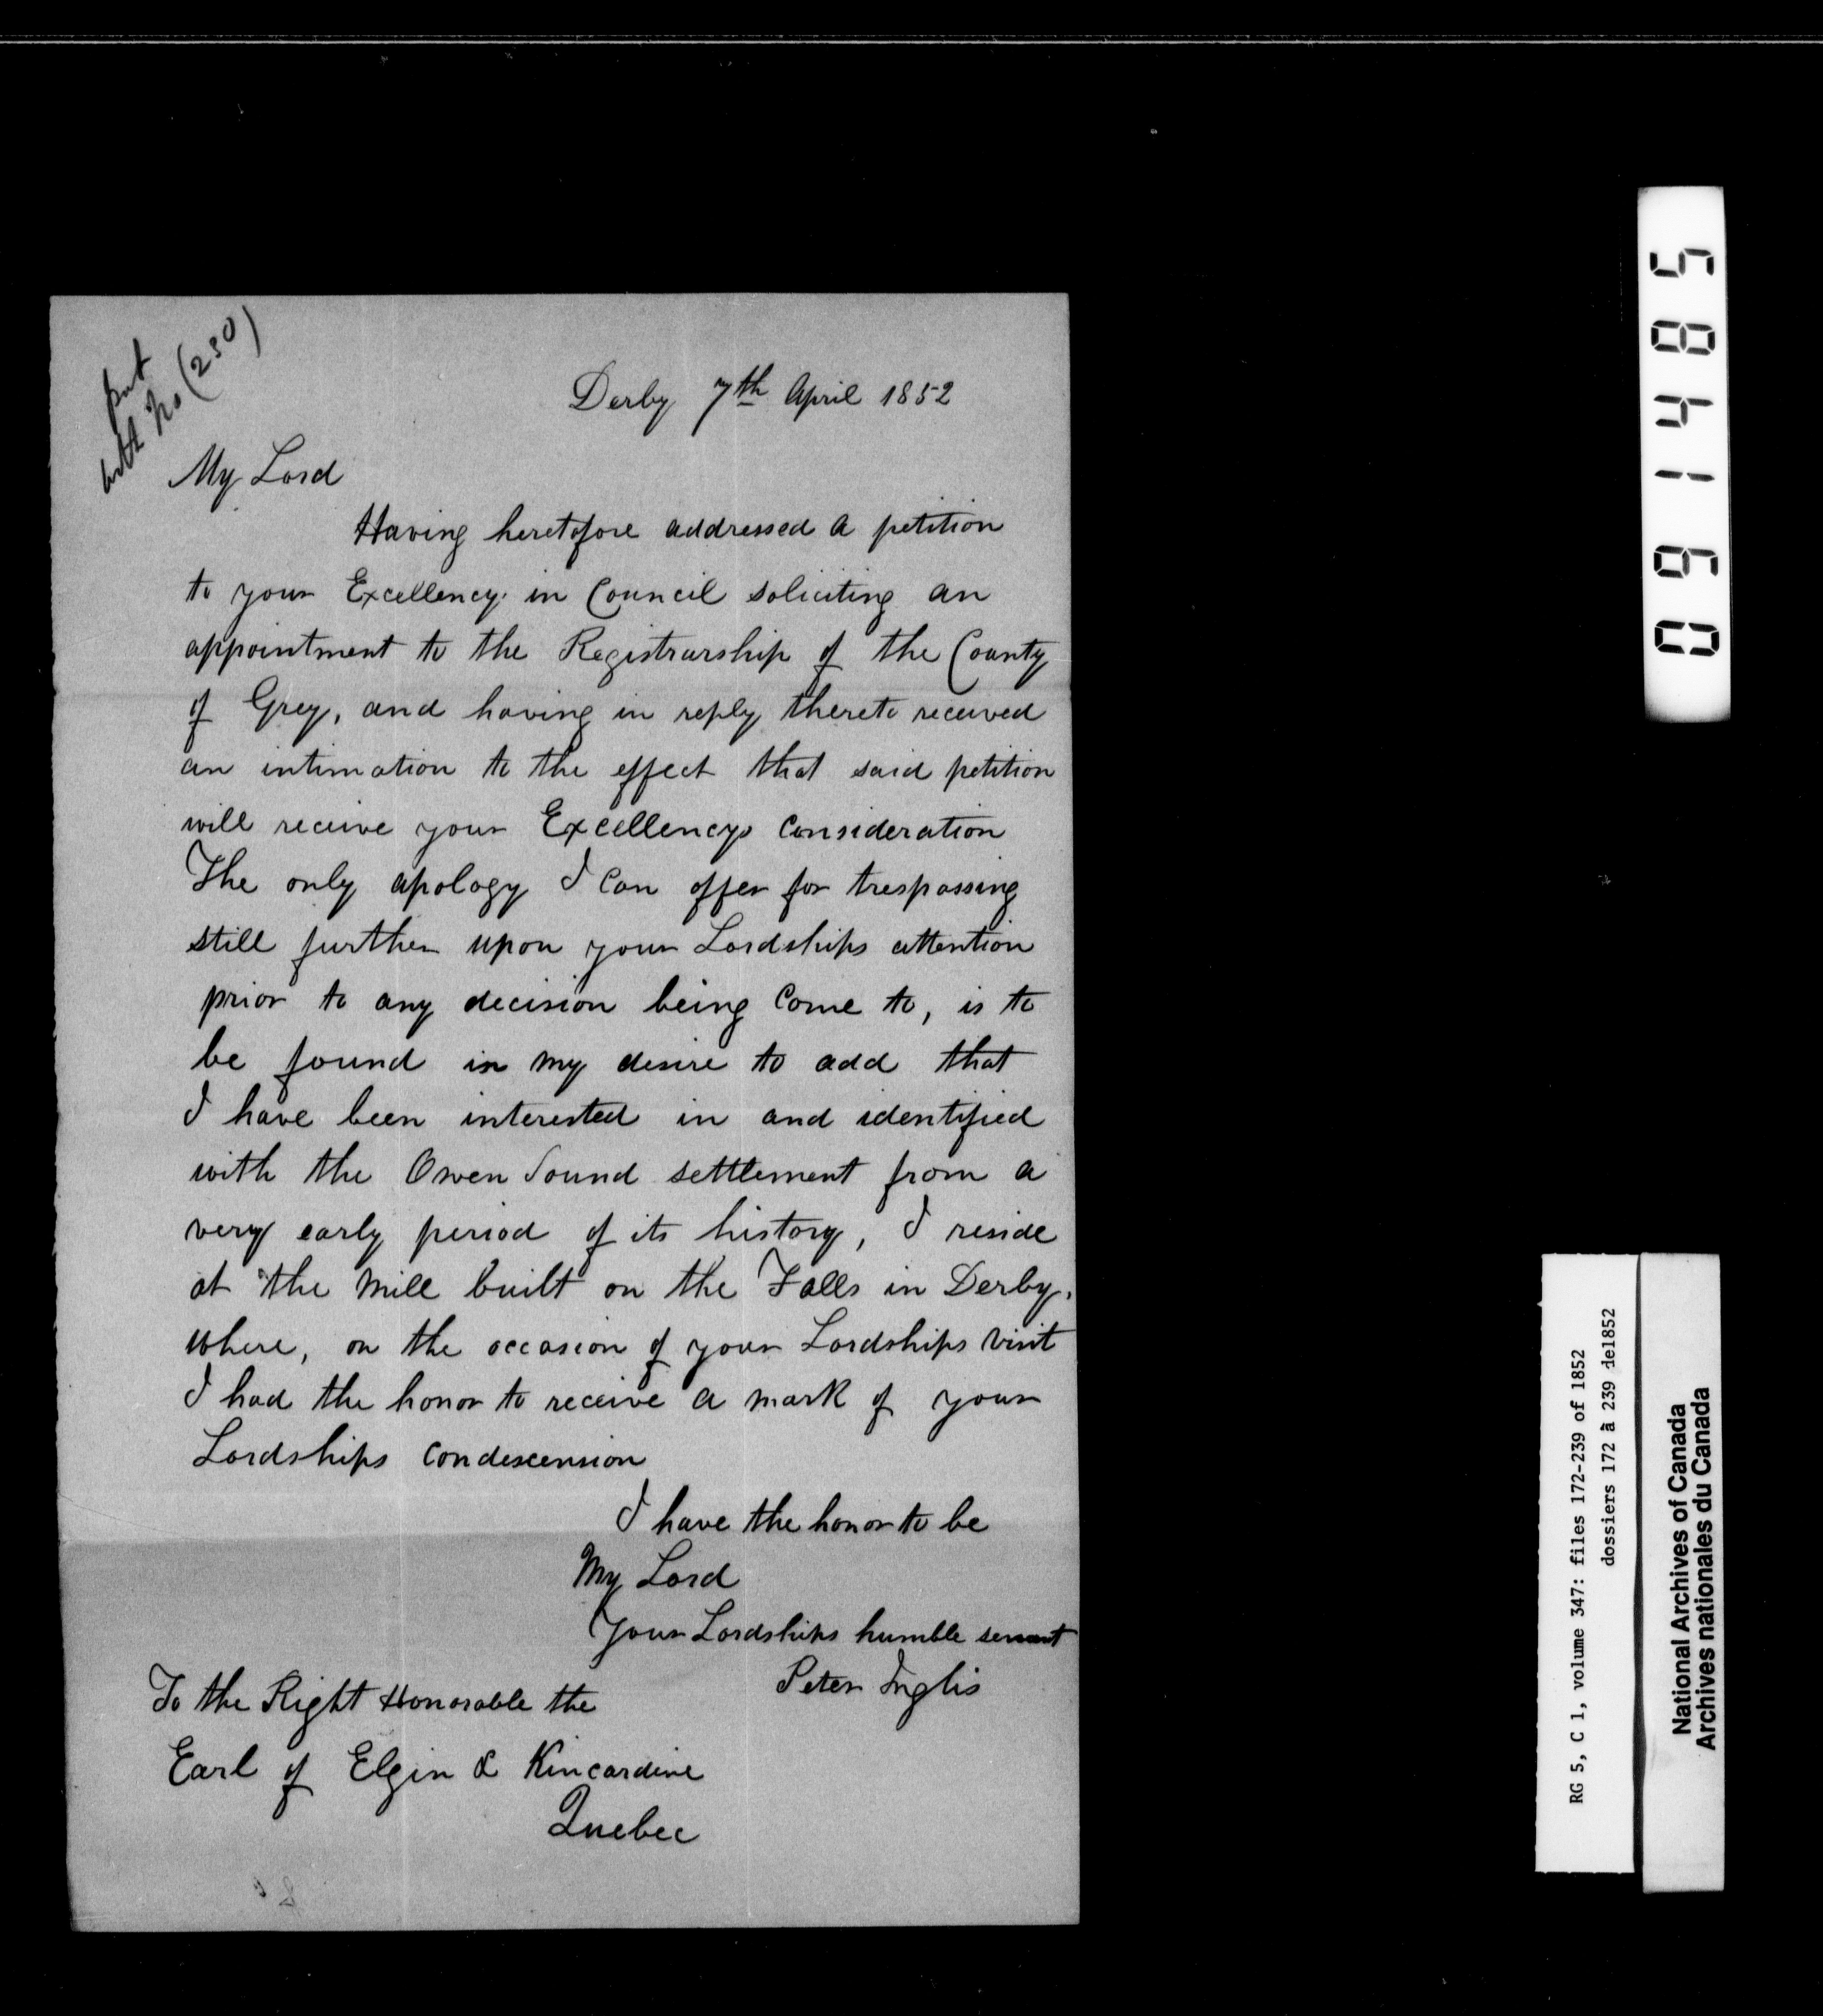 put
with No (230)
Derby 7th April 1852
My Lord
Having heretofore addressed a petition
to your Excellency in Council soliciting an
appointment to the Registrarship of the County
of Grey, and having in reply thereto received
an intimation to the effect that said petition
will receive your Excellencys Consideration
The only apology I Can offer for trespassing
still further upon your Lordships attention
prior to any decision being Come to, is to
be found in my desire to add that
I have been interested in and identified
with the Owen Sound settlement from a
very early period of its history, I reside
at the Mill built on the Falls in Derby,
where, on the occasion of your Lordships visit
I had the honor to receive a mark of your
Lordships Condescension
I have the honor to be
My Lord
Your Lordships humble servant
Peter Inglis
To the Right Honorable the
Earl of Elgin & Kincardine
Quebec
091485
RG 5, C 1, volume 347: files 172-239 of 1852
dossiers 172 à 239 de1852
National Archives of Canada
Archives nationales du Canada